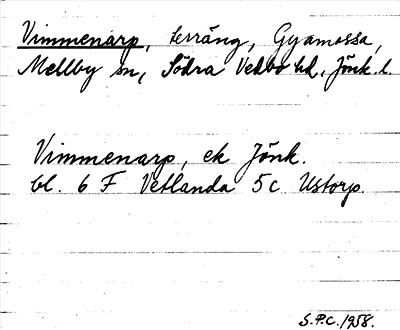 Vimmenarp, terräng, Gyamossa,
Mellby sn, Södra Vedbo hd, Jönk. l.
Vimmenarp, ek Jönk.
bl. 6 F Vetlanda 5 c Ustorp.
S.P.C. 1958.